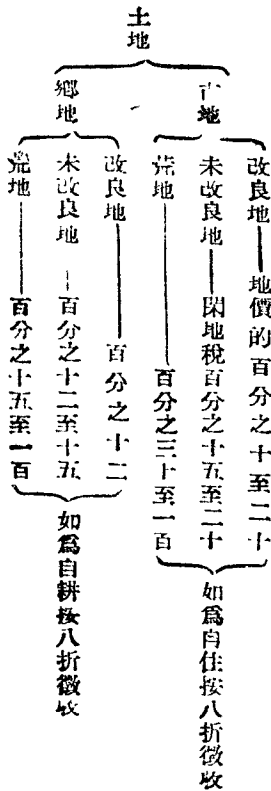 土地
市地
改良地——地價的百分之十至二十
未改良地——閑地稅百分之十五至二十
荒地——百分之三十至一百
如爲自住按八折徵收
鄉地
改良地——百分之十二
未改良地——百分之十二至十五
荒地——百分之十五至一百
如爲自耕按八折徵收